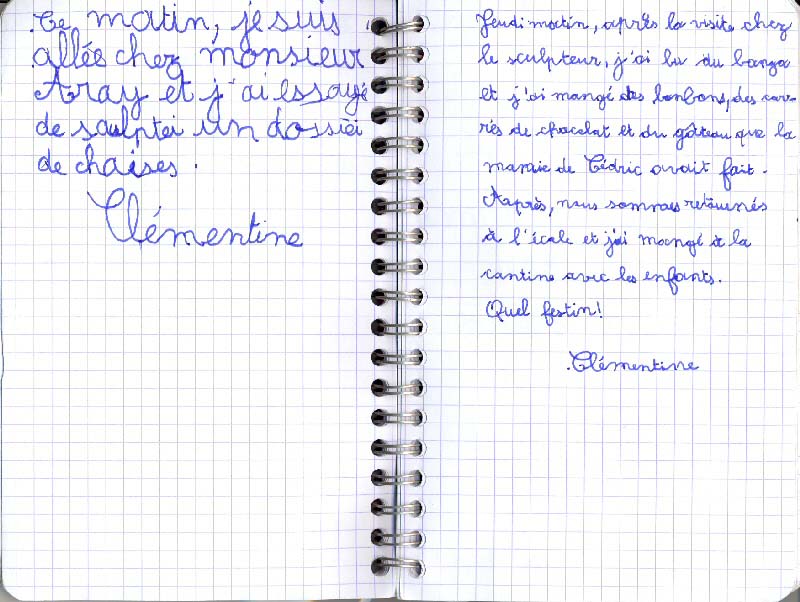 Ce matin, je suis
allée chez monsieur
Aray et j'ai essayé
de sculpter un dossier
de chaises.
Clémentine
Jeudi matin, après la visite chez
le sculpteur, j'ai bu du banga
et j'ai mangé des bonbons, des car-
rés de chocolat et du gâteau que la
mamie de Cédric avait fait.
Aaprès, nous sommes retournés
à l'école et j'ai mangé à la
cantine avec les enfants.
Quel festin!
Clémentine